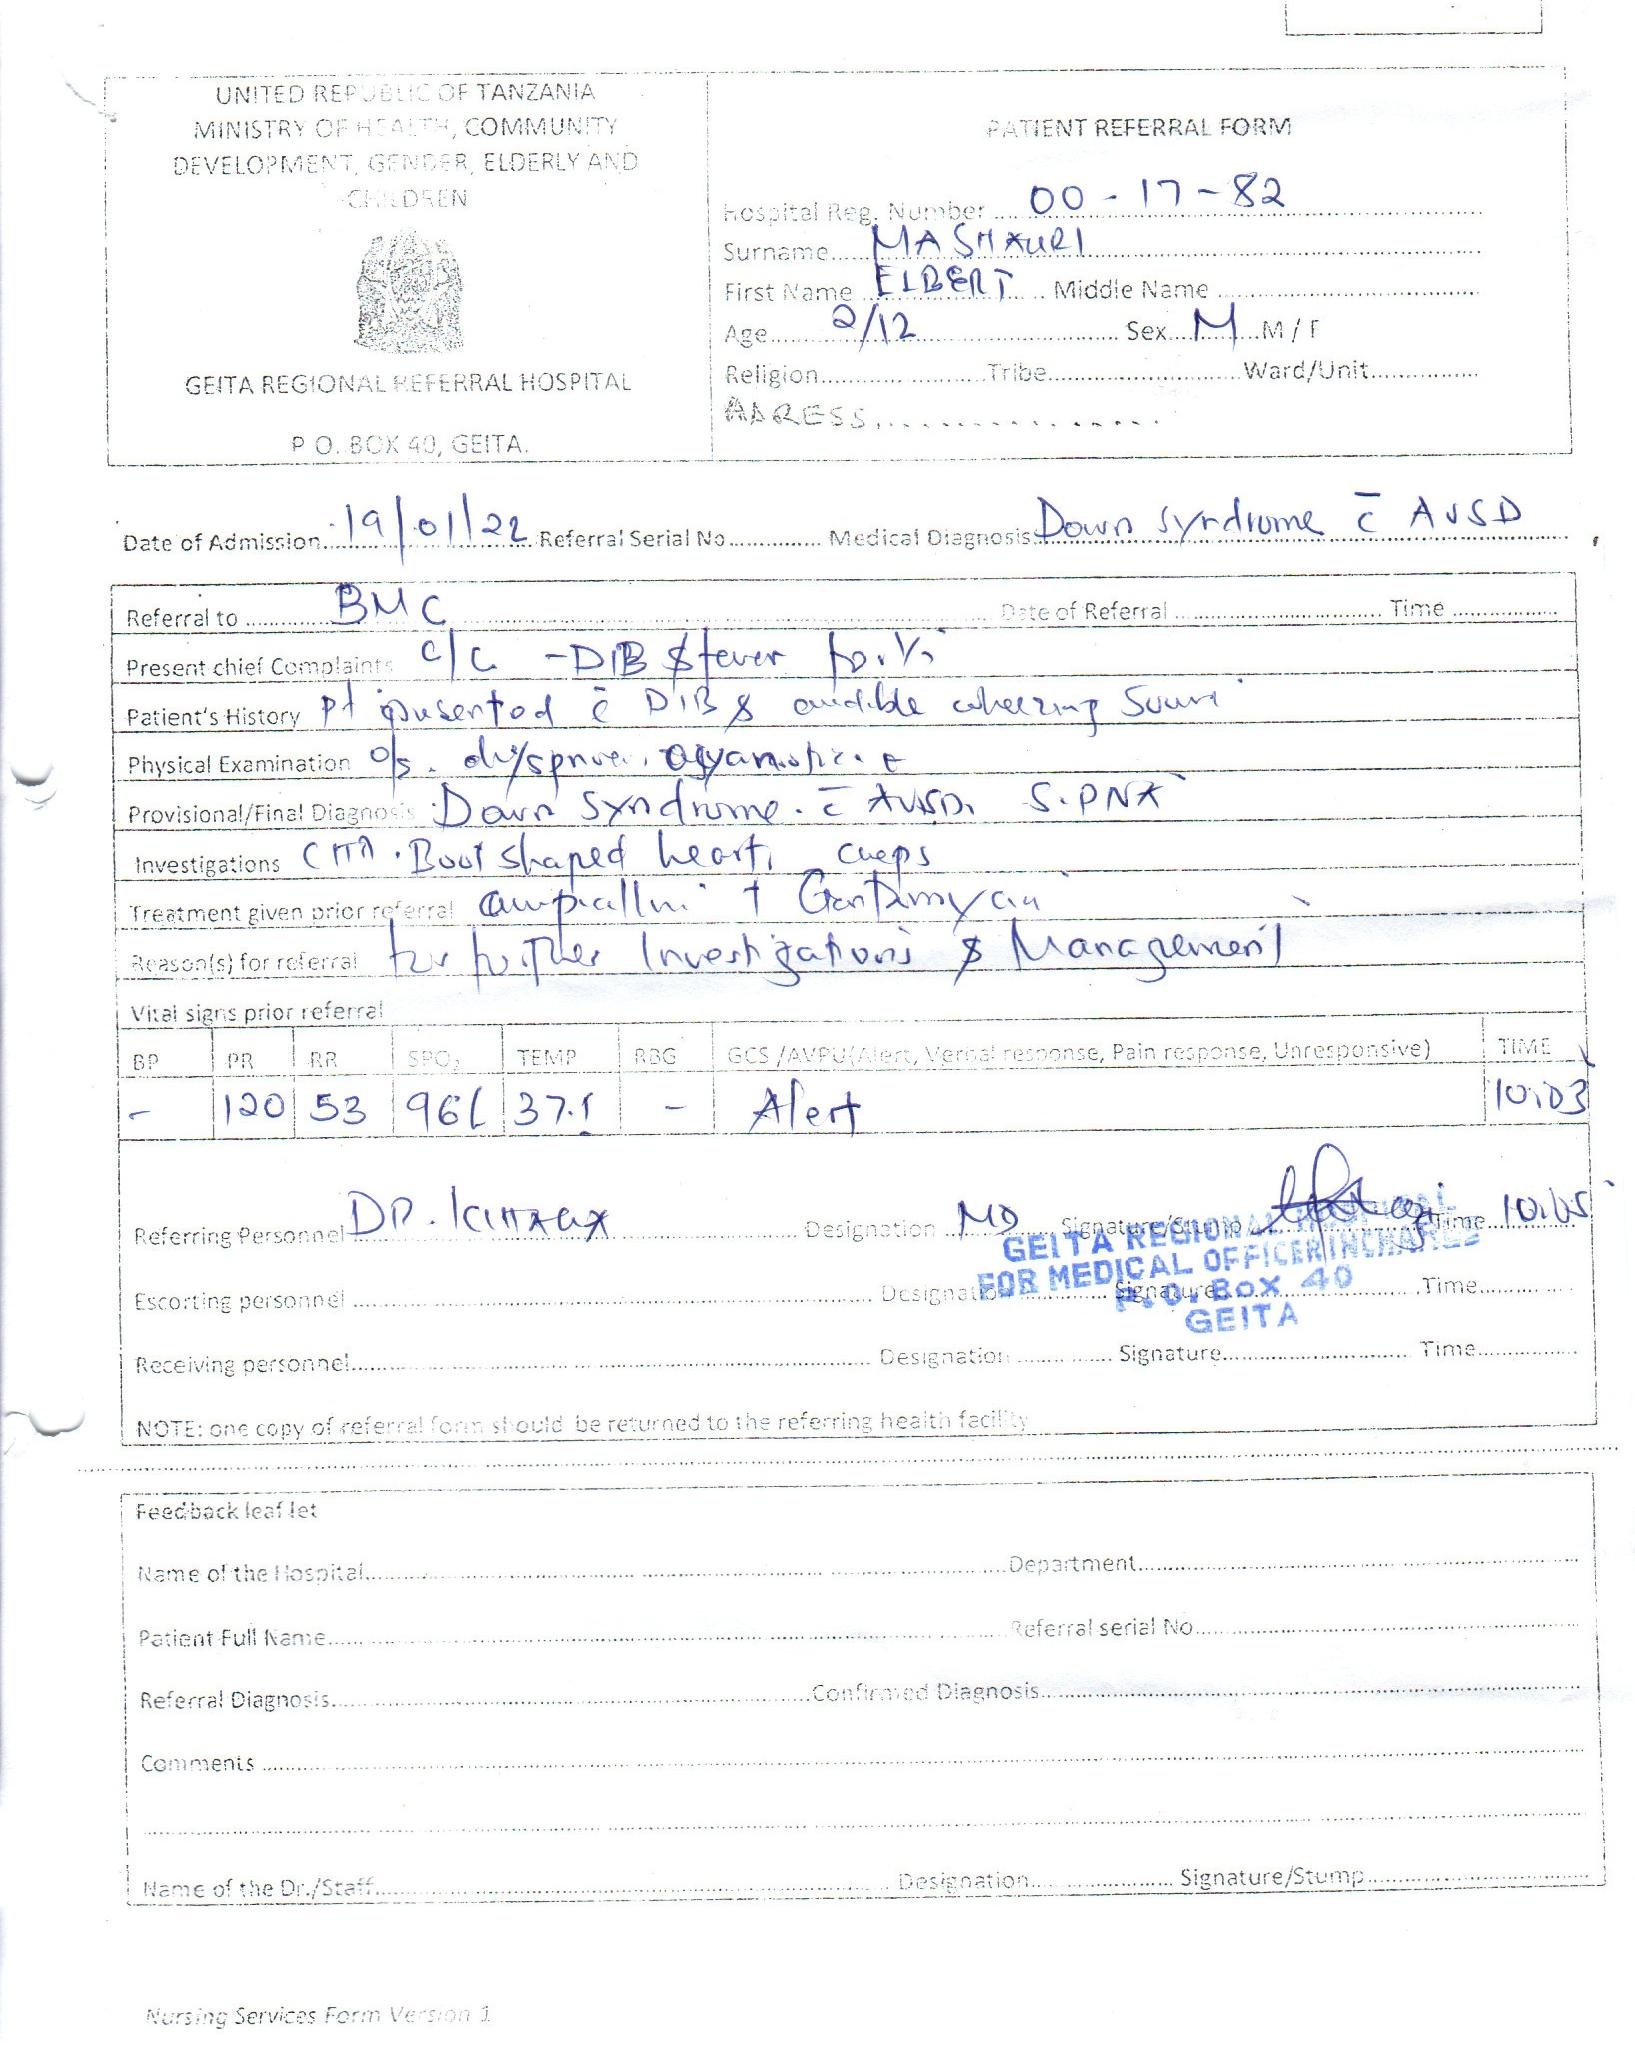 UNITED REPUBLIC OF TANZANIA
MINISTRY OF HEALTH, COMMUNITY
DEVELOPMENT, GENDER, ELDERLY AND
CHILDREN
GEITA REGIONAL REFERRAL HOSPITAL
P O. BOX 40, GEITA.
PATIENT REFERRAL FORM
Hospital Reg. Number 00-17-82
Surname MASHAURI
First Name ELBERT Middle Name
Age 2/12 Sex M M / F
Religion Tribe Ward/Unit
ADRESS
Date of Admission 19/01/22 Referral Serial No Medical Diagnosis Down syndrome c̄ AVSD
Referral to BMC Date of Referral Time
Present chief Complaints c/c - DIB & fever
Patient's History pt presented c̄ DIB & audible wheezing
Physical Examination
Provisional/Final Diagnosis Down Syndrome. c̄ AVSD, S.PNA
Investigations Boot shaped heart,
Treatment given prior referral
Reason(s) for referral for further Investigations & Management
Vital signs prior referral
BP PR RR SPO₂ TEMP RBG GCS /AVPU(Alert, Vernal response, Pain response, Unresponsive) TIME
- 120 53 96 37.1 - Alert 10:03
Referring Personnel DR. Designation MD Signature/Stump Time 10:05
GEITA REGIONAL HOSPITAL
FOR MEDICAL OFFICER INCHARGE
P.O. BOX 40
GEITA
Escorting personnel Designation Signature Time
Receiving personnel Designation Signature Time
NOTE: one copy of referral form should be returned to the referring health facility
Feedback leaf let
Name of the Hospital Department
Patient Full Name Referral serial No
Referral Diagnosis Confirmed Diagnosis
Comments
Name of the Dr./Staff Designation Signature/Stump
Nursing Services Form Version 1